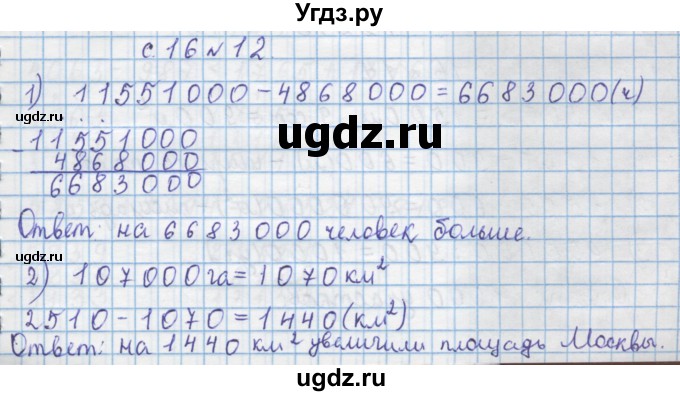 Угдз.ру
с 16 № 12.
1) 11551000 - 4868000 = 6683000 (ч)
ugdz.ru
ugdz.ru
- 11551000
4868000
6683000
ugdz.ru
Ответ: на 6683000 человек больше.
2) 107000 га = 1070 км²
2510 - 1070 = 1440 (км²)
Ответ: на 1440 км² увеличили площадь Москвы.
ugdz.ru
ugdz.ru